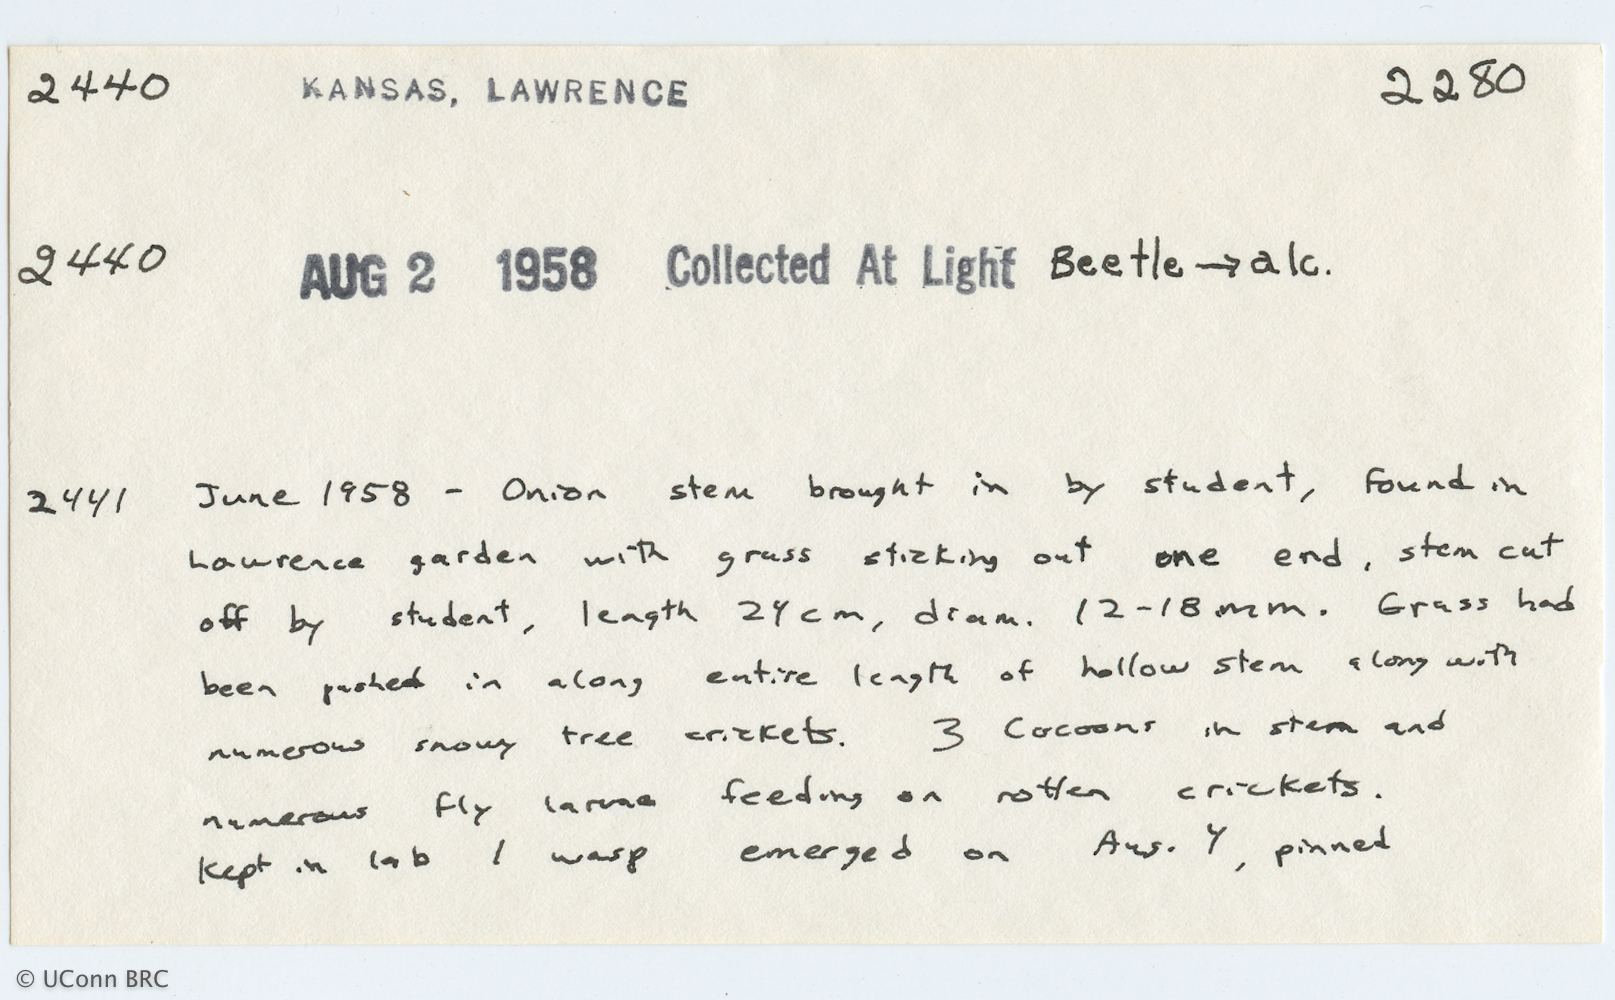 2440 KANSAS, LAWRENCE 2280
2440 AUG 2 1958 Collected At Light Beetle → alc.
2441 June 1958 - Onion stem brought in by student, Found in
Lawrence garden with grass sticking out one end, stem cut
off by student, length 24cm, diam. 12-18mm. Grass had
been pushed in along entire length of hollow stem along with
numerous snowy tree crickets. 3 Cocoons in stem and
numerous fly larvae feeding on rotten crickets.
Kept in lab 1 wasp emerged on Aug. 4, pinned
© UConn BRC